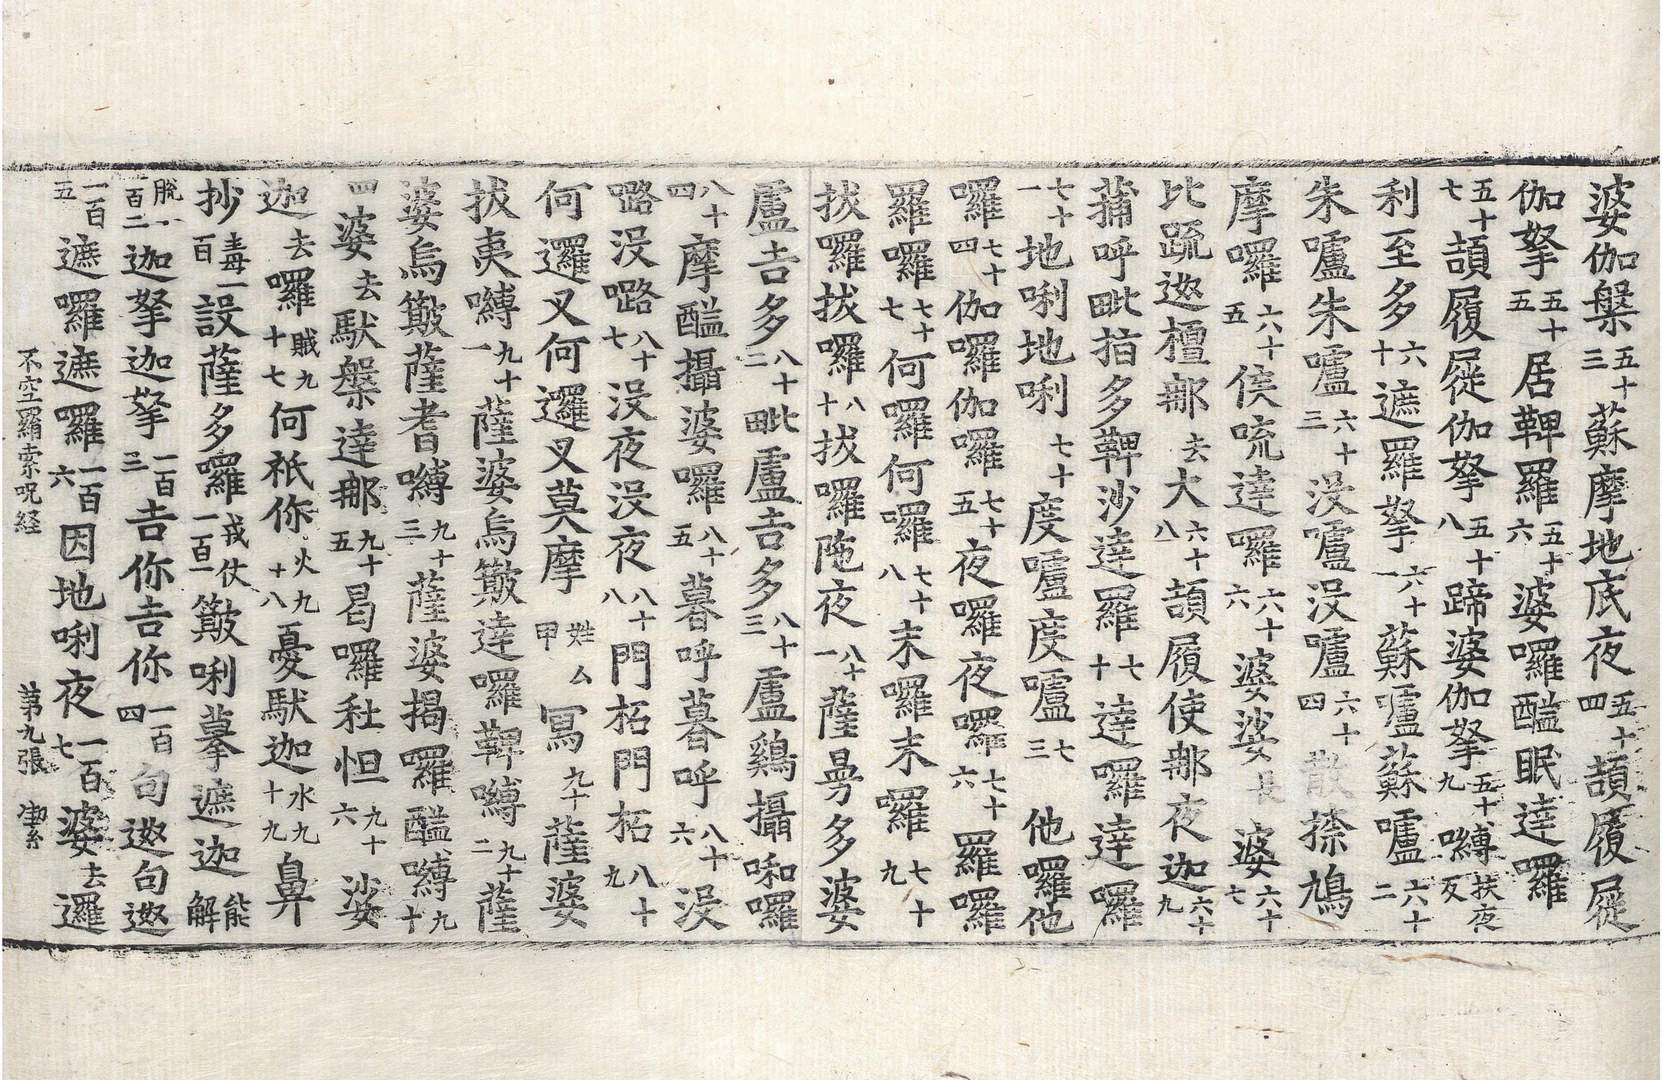 婆伽槃五十三蘇摩地底夜四五十頡履屣
伽拏五十五居鞞羅五十六婆囉醯眠達囉
五十七頡履屣伽拏五十八蹄婆伽拏五十九嚩扶夜反
利至多六十遮羅拏六十一蘇嚧蘇嚧六十二
朱嚧朱嚧六十三没嚧没嚧六十四散捺鳩
摩囉六十五侯唬達囉六十六婆娑長婆六十七
比䟽迦檀那去大六十八頡履使那夜迦六十九
蒲呼毗拍多鞞沙達羅七十達囉達囉
七十一地唎地唎七十二度嚧度嚧七十三他囉他
囉七十四伽囉伽囉七十五夜囉夜囉七十六羅囉
羅囉七十七何囉何囉七十八末囉末囉七十九
拔囉拔囉八十拔囉陁夜八十一薩㝵多婆
盧吉多八十二毗盧吉多八十三盧鷄攝啝囉
八十四摩醯攝婆囉八十五暮呼暮呼八十六没
㗉没㗉八十七没夜没夜八十八門柘門柘八十九
何邏叉何邏叉莫摩姓厶甲寫九十薩婆
拔夷嚩九十一薩婆烏䉬達囉鞞嚩九十二薩
婆烏䉬薩耆嚩九十三薩婆揭囉醯嚩九十
四婆去馱槃達那九十五曷囉社怛九十六娑
迦去囉賊九十七何祇你火九十八憂馱迦水九十九鼻
抄毒一百設薩多囉戎仗一百一䉬唎摹遮迦能解
脫一百二迦拏迦拏一百三吉你吉你一百四句遬句遬
一百五遮囉遮囉一百六因地唎夜一百七婆去邏
不空羂索呪経　第九張